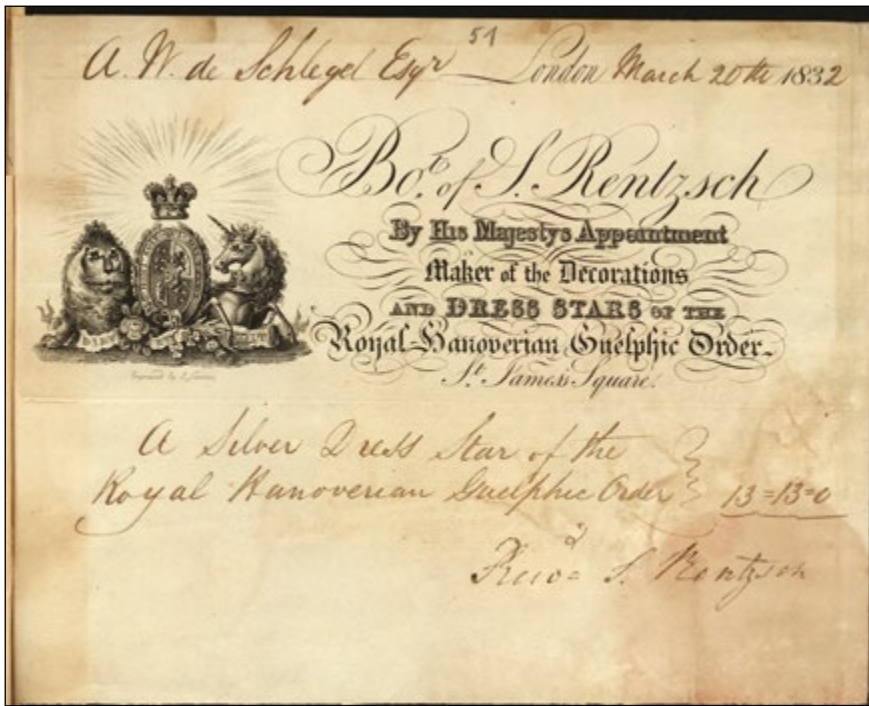 51
A. W. de Schlegel Esqr London March 20th 1832
Bot. of S. Rentzsch
By His Majestys Appointment
Maker of the Decorations
AND DRESS STARS OF THE
Royal Hanoverian Guelphic Order.
St. James's Square.
A Silver Dress Star of the
Royal Hanoverian Guelphic Order } 13=13=0
Recd S. Rentzsch